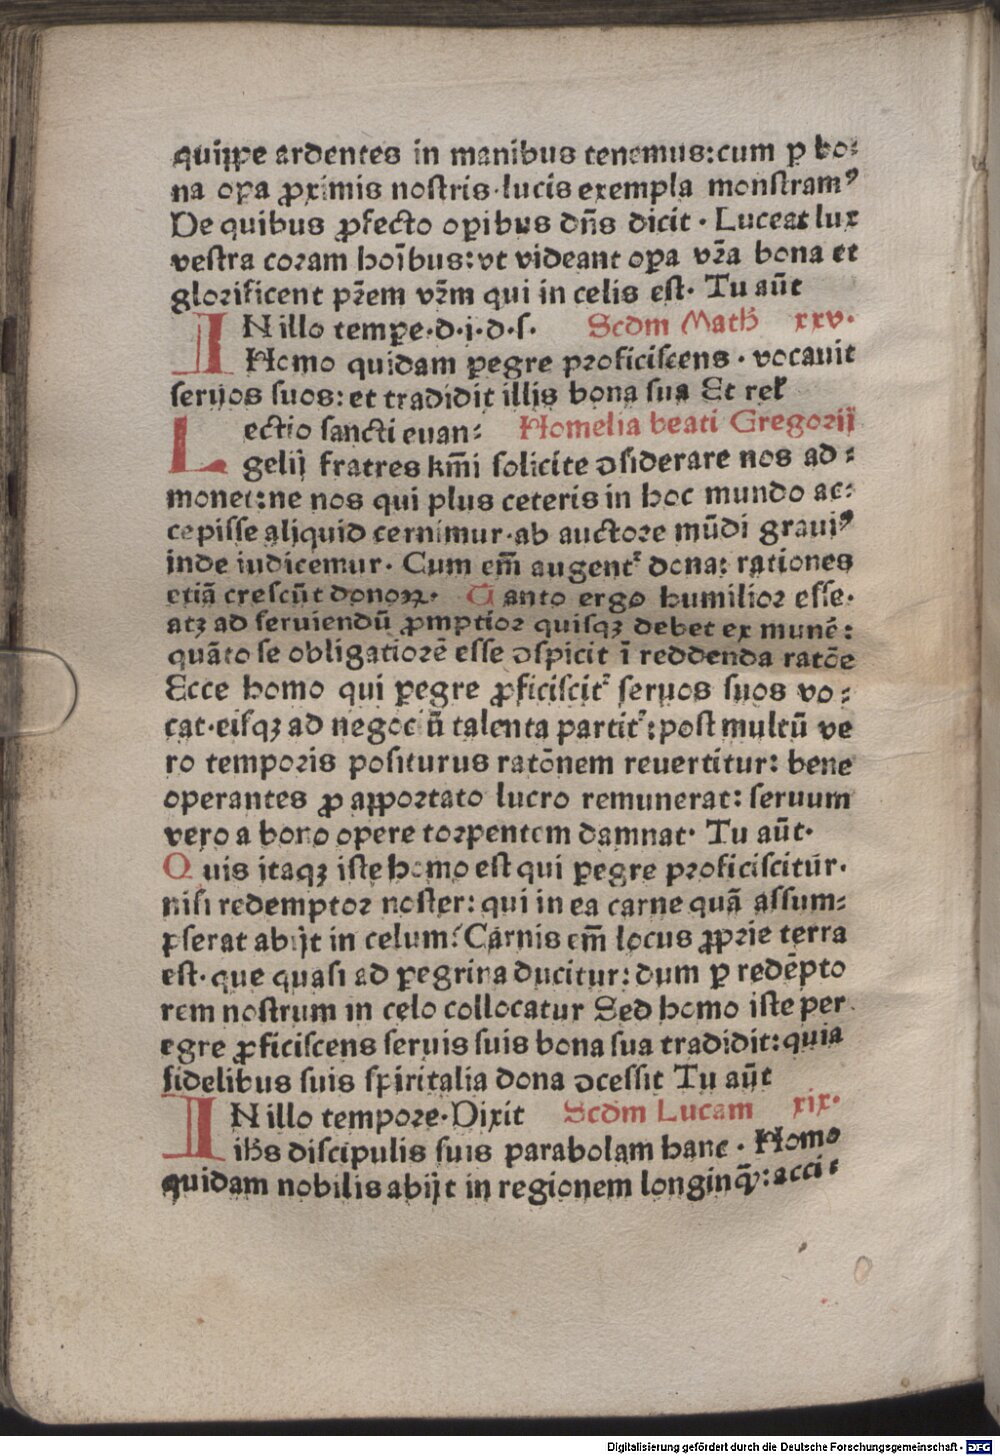 quippe ardentes in manibus tenemus:cum ꝑ bo⸗
na oꝑa ꝓximis nostris·lucis exempla monstramꝰ
De quibus ꝓfecto oꝑibus dn̄s dicit · Luceat lux
vestra coram hoībus:vt videant oꝑa vr̄a bona et
glorificent pr̄em vr̄m qui in celis est· Tu aūt
IN illo temꝑe·d·i·d·ſ· Scdm Math xxv·
Homo quidam ꝑegre proficiſcens · vocauit
ſeruos ſuos: et tradidit illis bona ſua Et rel̄
Lectio ſancti euan⸗ Homelia beati Gregorij
gelij fratres km̄i ſolicite ↄſiderare nos ad⸗
monet:ne nos qui plus ceteris in hoc mundo ac⸗
cepiſſe aliquid cernimur·ab auctore mūdi grauiꝰ
inde iudicemur· Cum em̄ augent᷑ dona: rationes
etiā creſcūt donoꝝ· Tanto ergo humilior eſſe·
atqꝫ ad ſeruiendū ꝓmptior quiſqꝫ debet ex munē:
quāto ſe obligatiorē eſſe ↄſpicit ī reddenda ratōe
Ecce homo qui ꝑegre ꝓficiſcit᷑ ſeruos ſuos vo⸗
cat·eiſqꝫ ad negociū talenta partit᷑:poſt multū ve
ro temporis poſiturus ratōnem reuertitur: bene
operantes ꝓ apportato lucro remunerat: ſeruum
vero a bono opere torpentem damnat· Tu aūt·
Quis itaqꝫ iſte homo eſt qui ꝑegre proficiſcitur·
niſi redemptor noſter: qui in ea carne quā aſſum⸗
pſerat abijt in celum? Carnis em̄ locus ꝓprie terra
eſt· que quaſi ad ꝑegrina ducitur: dum ꝑ redēpto
rem noſtrum in celo collocatur Sed homo iſte per
egre ꝓficiſcens ſeruis ſuis bona ſua tradidit: quia
fidelibus ſuis ſpiritalia dona ↄceſſit Tu aūt
IN illo tempore·Dixit Scdm Lucam xix·
ihs diſcipulis ſuis parabolam hanc · Homo
quidam nobilis abijt in regionem longinq̄: acci⸗
Digitalisierung gefördert durch die Deutsche Forschungsgemeinschaft - DFG